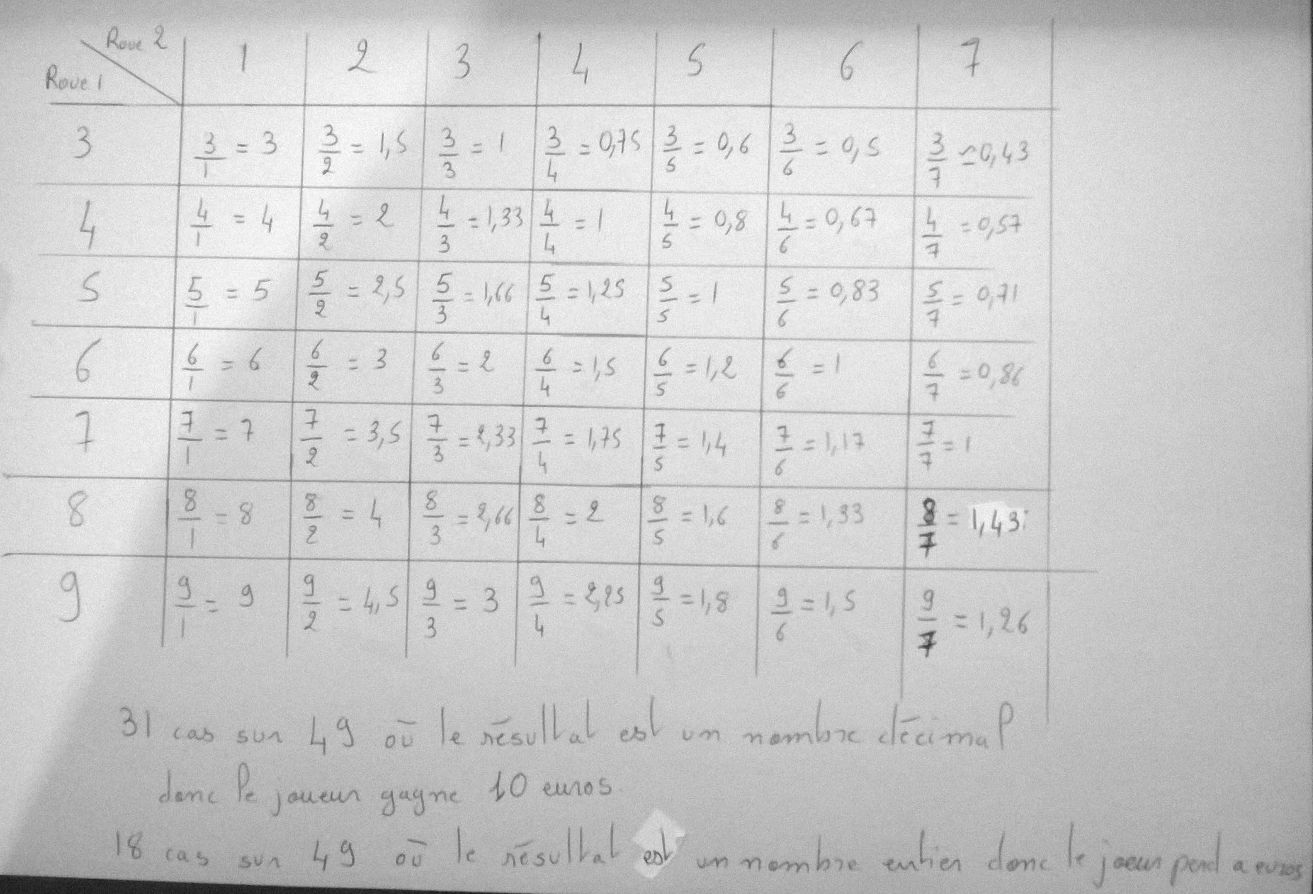 Roue 2 1 2 3 4 5 6 7
Roue 1
3 3/1 = 3 3/2 = 1,5 3/3 = 1 3/4 = 0,75 3/5 = 0,6 3/6 = 0,5 3/7 ≃ 0,43
4 4/1 = 4 4/2 = 2 4/3 = 1,33 4/4 = 1 4/5 = 0,8 4/6 = 0,67 4/7 = 0,57
5 5/1 = 5 5/2 = 2,5 5/3 = 1,66 5/4 = 1,25 5/5 = 1 5/6 = 0,83 5/7 = 0,71
6 6/1 = 6 6/2 = 3 6/3 = 2 6/4 = 1,5 6/5 = 1,2 6/6 = 1 6/7 = 0,86
7 7/1 = 7 7/2 = 3,5 7/3 = 2,33 7/4 = 1,75 7/5 = 1,4 7/6 = 1,17 7/7 = 1
8 8/1 = 8 8/2 = 4 8/3 = 2,66 8/4 = 2 8/5 = 1,6 8/6 = 1,33 8/7 = 1,43
9 9/1 = 9 9/2 = 4,5 9/3 = 3 9/4 = 2,25 9/5 = 1,8 9/6 = 1,5 9/7 = 1,26
31 cas sur 49 où le résultat est un nombre décimal
donc le joueur gagne 10 euros.
18 cas sur 49 où le résultat est un nombre entier donc le joeur perd a euros